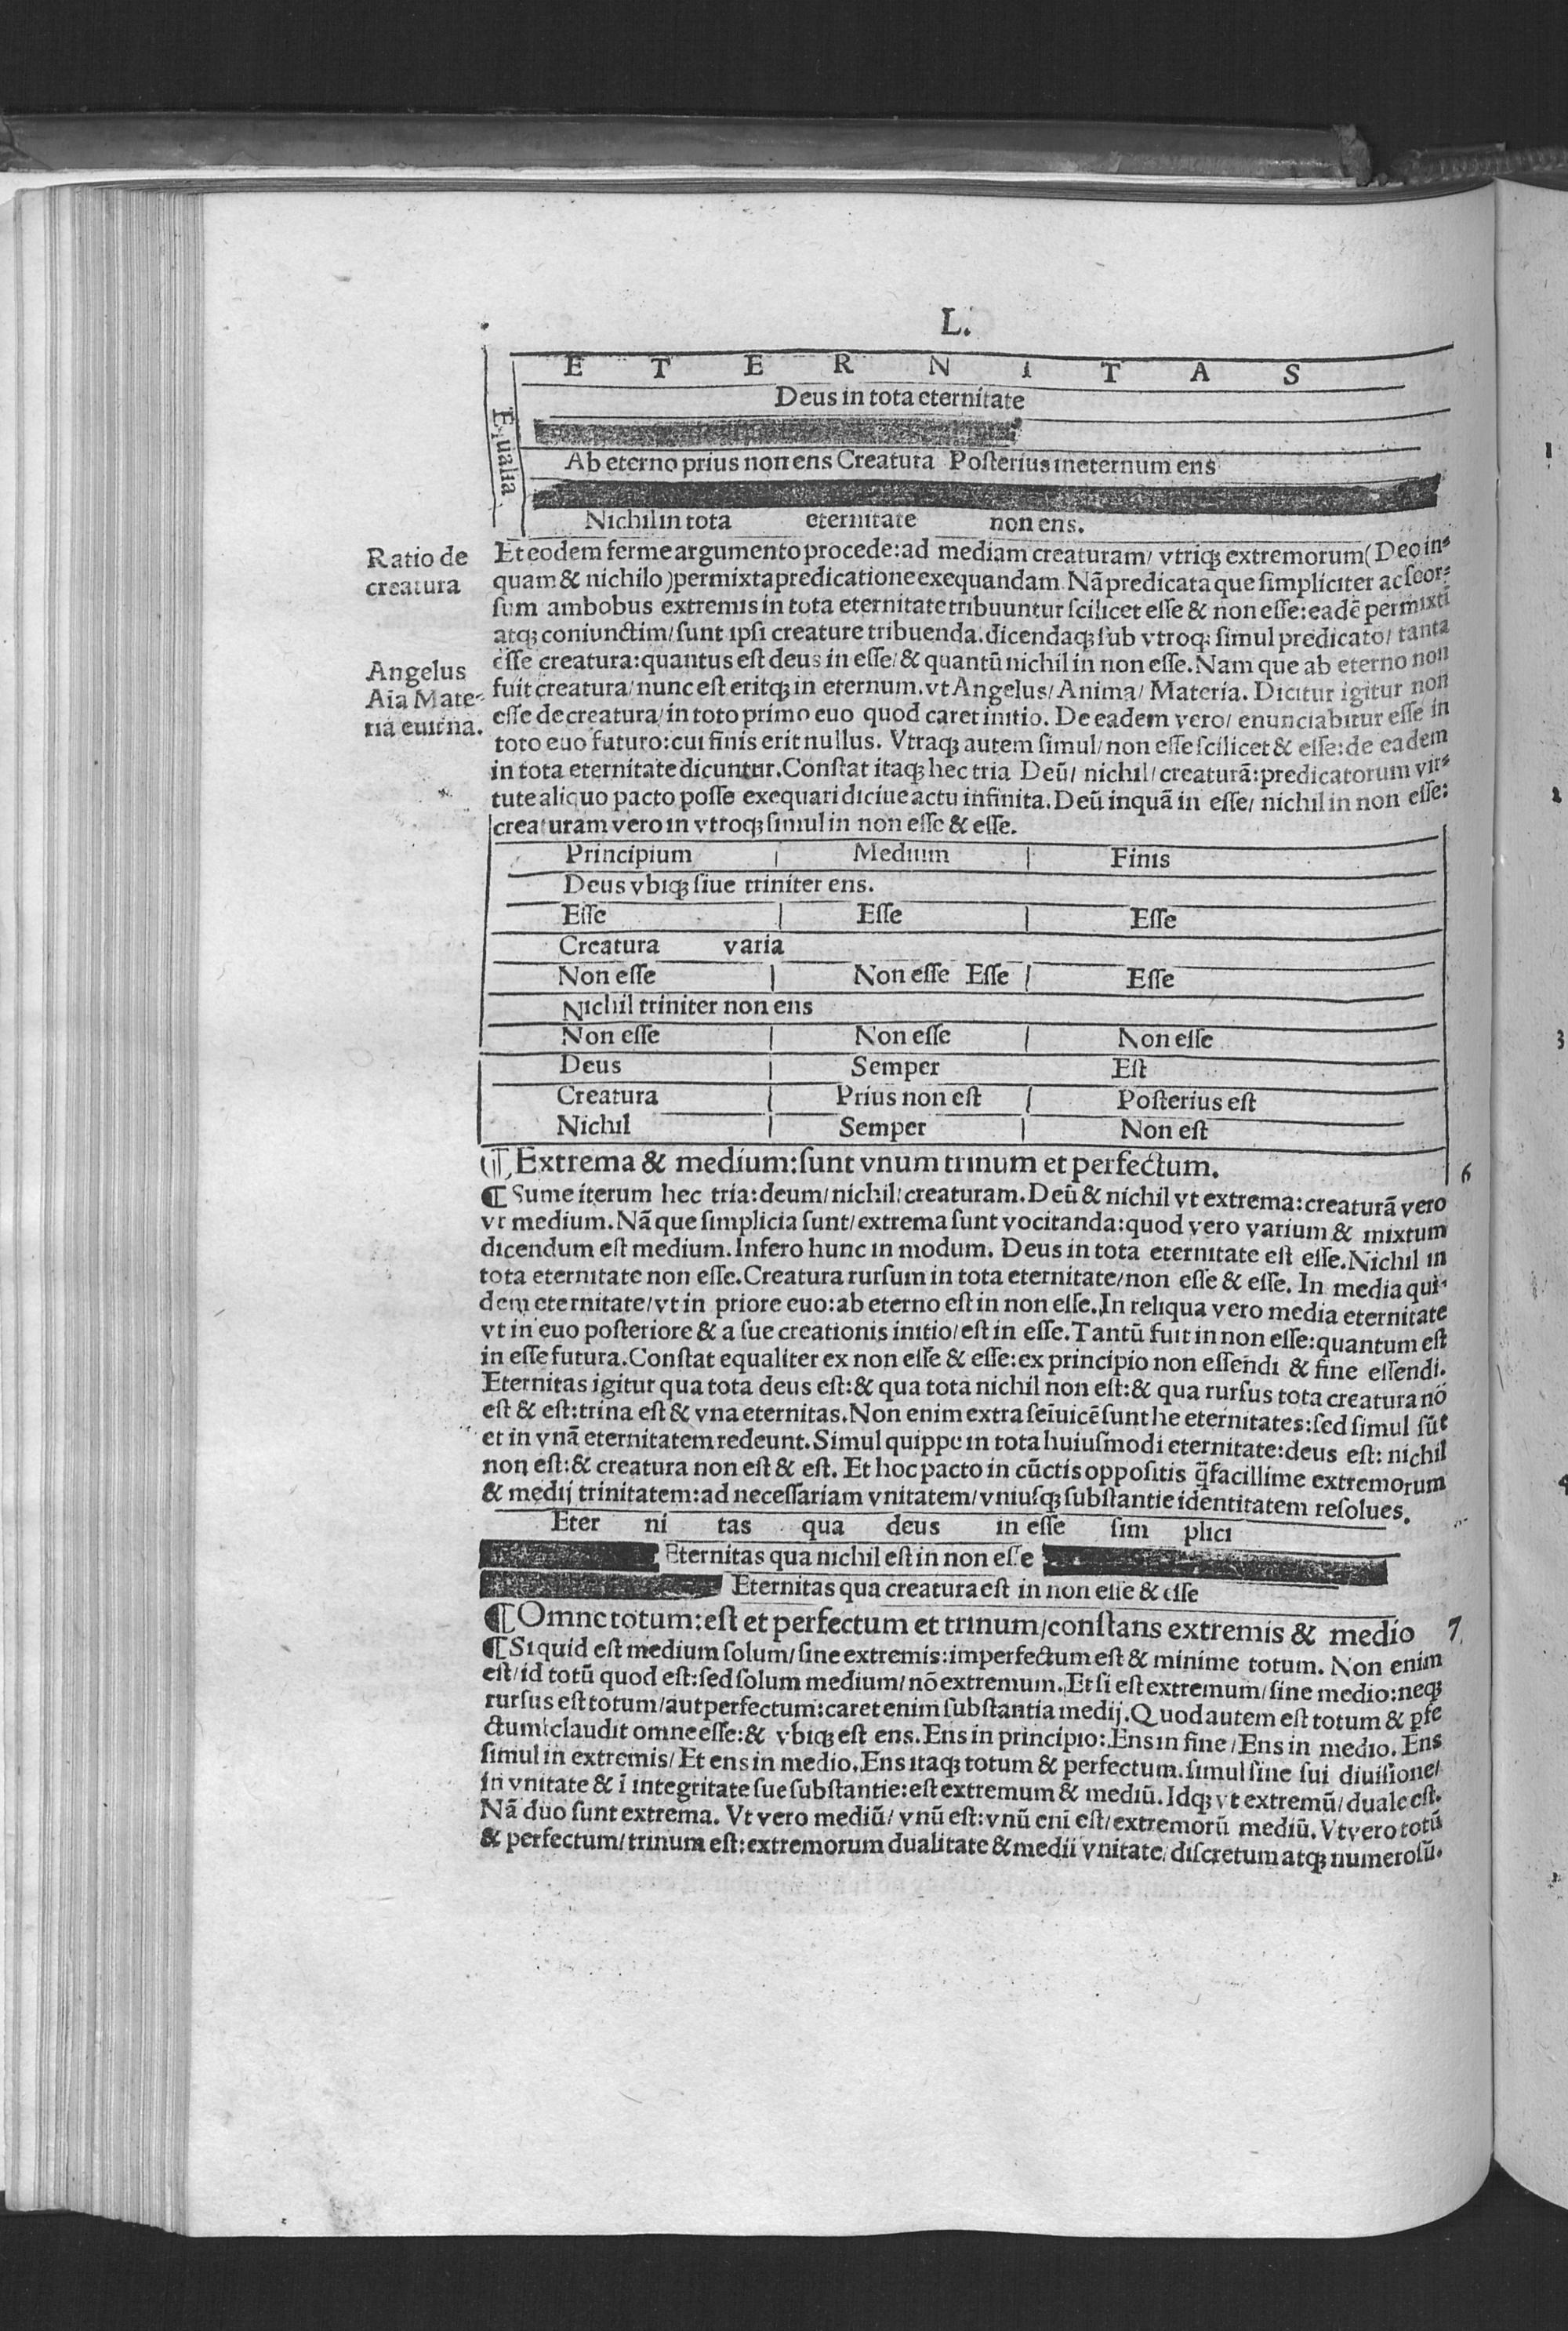 L.
E T E R N I T A S
Deus in tota eternitate
Equalia
Ab eterno prius non ens Creatura Posterius ineternum ens
Nichil in tota eternitate non ens.
Ratio de
creatura
Et eodem ferme argumento procede: ad mediam creaturam/ vtriqꝫ extremorum (Deo in⸗
quam & nichilo) permixta predicatione exequandam. Nã predicata que simpliciter ac seor⸗
sum ambobus extremis in tota eternitate tribuuntur scilicet esse & non esse: eadẽ permixti
atqꝫ coniunctim/ sunt ipsi creature tribuenda. dicendaqꝫ sub vtroqꝫ simul predicato/ tanta
Angelus
Aĩa Mate⸗
ria euitna.
esse creatura: quantus est deus in esse/ & quantũ nichil in non esse. Nam que ab eterno non
fuit creatura/ nunc est eritqꝫ in eternum. vt Angelus/ Anima/ Materia. Dicitur igitur non
esse de creatura/ in toto primo euo quod caret initio. De eadem vero/ enunciabitur esse in
toto euo futuro: cui finis erit nullus. Vtraqꝫ autem simul/ non esse scilicet & esse: de eadem
in tota eternitate dicuntur. Constat itaqꝫ hec tria Deũ/ nichil/ creaturã: predicatorum vir⸗
tute aliquo pacto posse exequari diciue actu infinita. Deũ inquã in esse/ nichil in non esse:
creaturam vero in vtroqꝫ simul in non esse & esse.
Principium | Medium | Finis
Deus vbiqꝫ siue triniter ens.
Esse | Esse | Esse
Creatura varia
Non esse | Non esse Esse | Esse
Nichil triniter non ens
Non esse | Non esse | Non esse
Deus | Semper Est
Creatura | Prius non est | Posterius est
Nichil | Semper | Non est
¶ Extrema & medium: sunt vnum trinum et perfectum. 6
¶ Sume iterum hec tria: deum/ nichil/ creaturam. Deũ & nichil vt extrema: creaturã vero
vt medium. Nã que simplicia sunt/ extrema sunt vocitanda: quod vero varium & mixtum
dicendum est medium. Infero hunc in modum. Deus in tota eternitate est esse. Nichil in
tota eternitate non esse. Creatura rursum in tota eternitate/ non esse & esse. In media qui⸗
dem eternitate/ vt in priore euo: ab eterno est in non esse. In reliqua vero media eternitate
vt in euo posteriore & a sue creationis initio/ est in esse. Tantũ fuit in non esse: quantum est
in esse futura. Constat equaliter ex non esse & esse: ex principio non essendi & fine essendi.
Eternitas igitur qua tota deus est: & qua tota nichil non est: & qua rursus tota creatura nõ
est & est: trina est & vna eternitas. Non enim extra seĩuicẽ sunt he eternitates: sed simul sũt
et in vnã eternitatem redeunt. Simul quippe in tota huiusmodi eternitate: deus est: nichil
non est: & creatura non est & est. Et hoc pacto in cũctis oppositis q̃facillime extremorum
& medij trinitatem: ad necessariam vnitatem/ vniusqꝫ substantie identitatem resolues.
Eter ni tas qua deus in esse sim plici
Eternitas qua nichil est in non esse
Eternitas qua creatura est in non esse & esse
¶ Omne totum: est et perfectum et trinum/ constans extremis & medio 7
¶ Si quid est medium solum/ sine extremis: imperfectum est & minime totum. Non enim
est/ id totũ quod est: sed solum medium/ nõ extremum. Et si est extremum/ sine medio: neqꝫ
rursus est totum/ aut perfectum: caret enim substantia medij. Quod autem est totum & ꝑfe
ctum: claudit omne esse: & vbiqꝫ est ens. Ens in principio: Ens in fine/ Ens in medio. Ens
simul in extremis/ Et ens in medio. Ens itaqꝫ totum & perfectum. simul sine sui diuisione/
in vnitate & ĩ integritate sue substantie: est extremum & mediũ. Idqꝫ vt extremũ/ duale est.
Nã duo sunt extrema. Vt vero mediũ/ vnũ est: vnũ enĩ est/ extremorũ mediũ. Vt vero totũ
& perfectum/ trinum est: extremorum dualitate & medii vnitate/ discretum atqꝫ numerosũ.